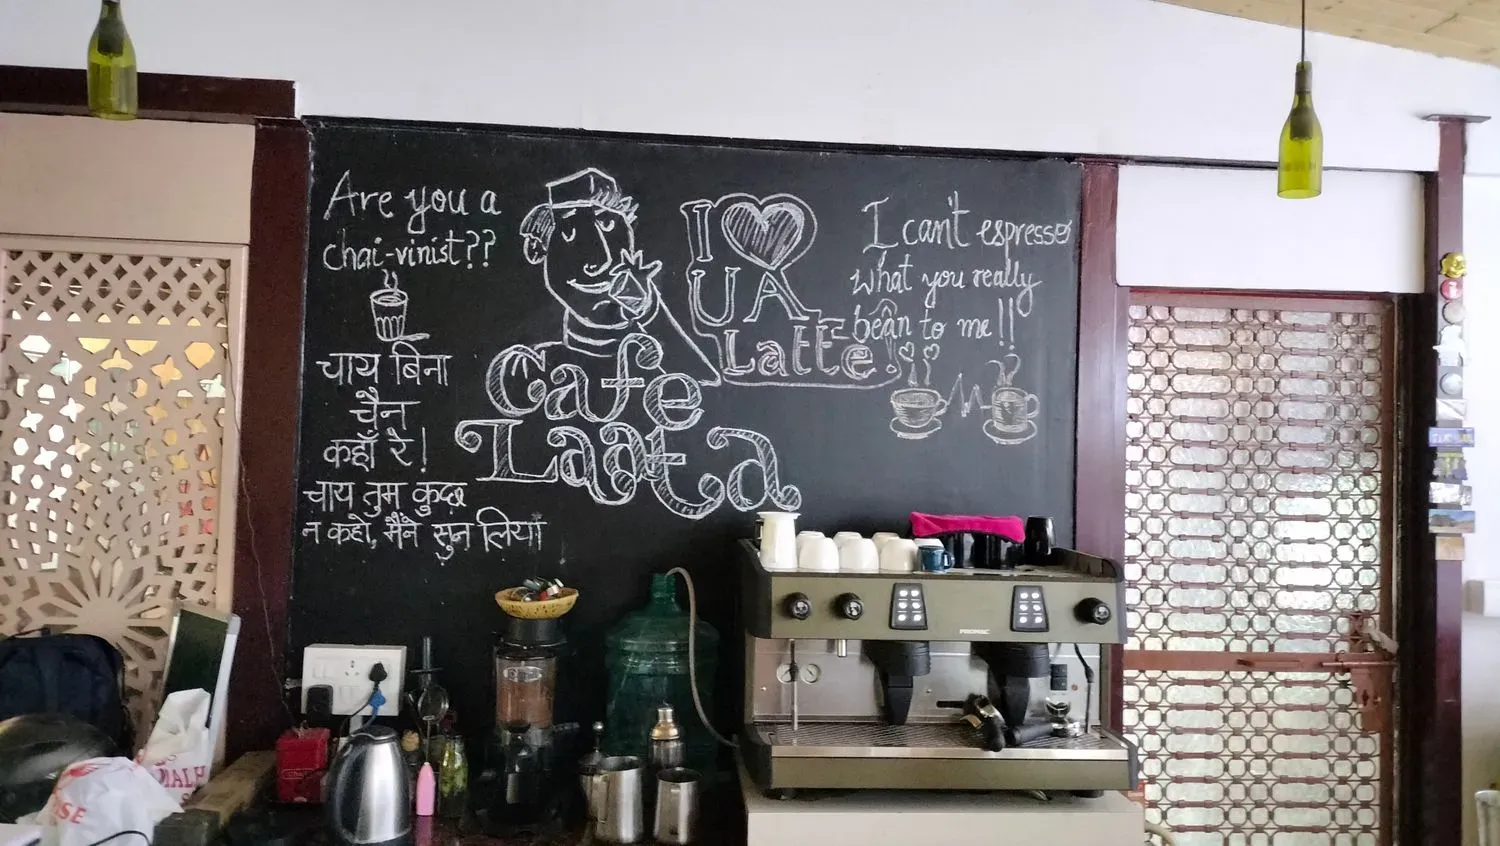 Are you a
chai-vinist??
चाय बिना
चैन
कहाँ रे!
चाय तुम कुछ
न कहो, मैंने सुन लिया
Cafe
Laata
I
U A
Latte!
I can't espresso
what you really
bean to me!!
PROMAC
MALH
SE